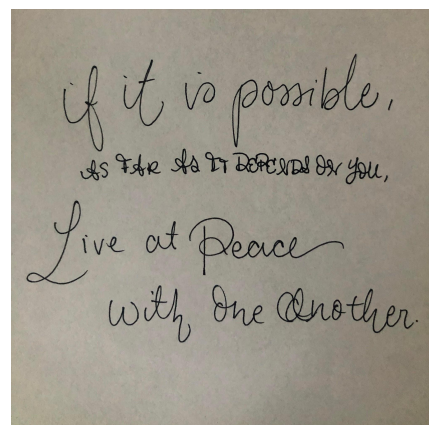 if it is possible,
AS FAR AS IT DEPENDS ON YOU,
Live at Peace
with One Another.